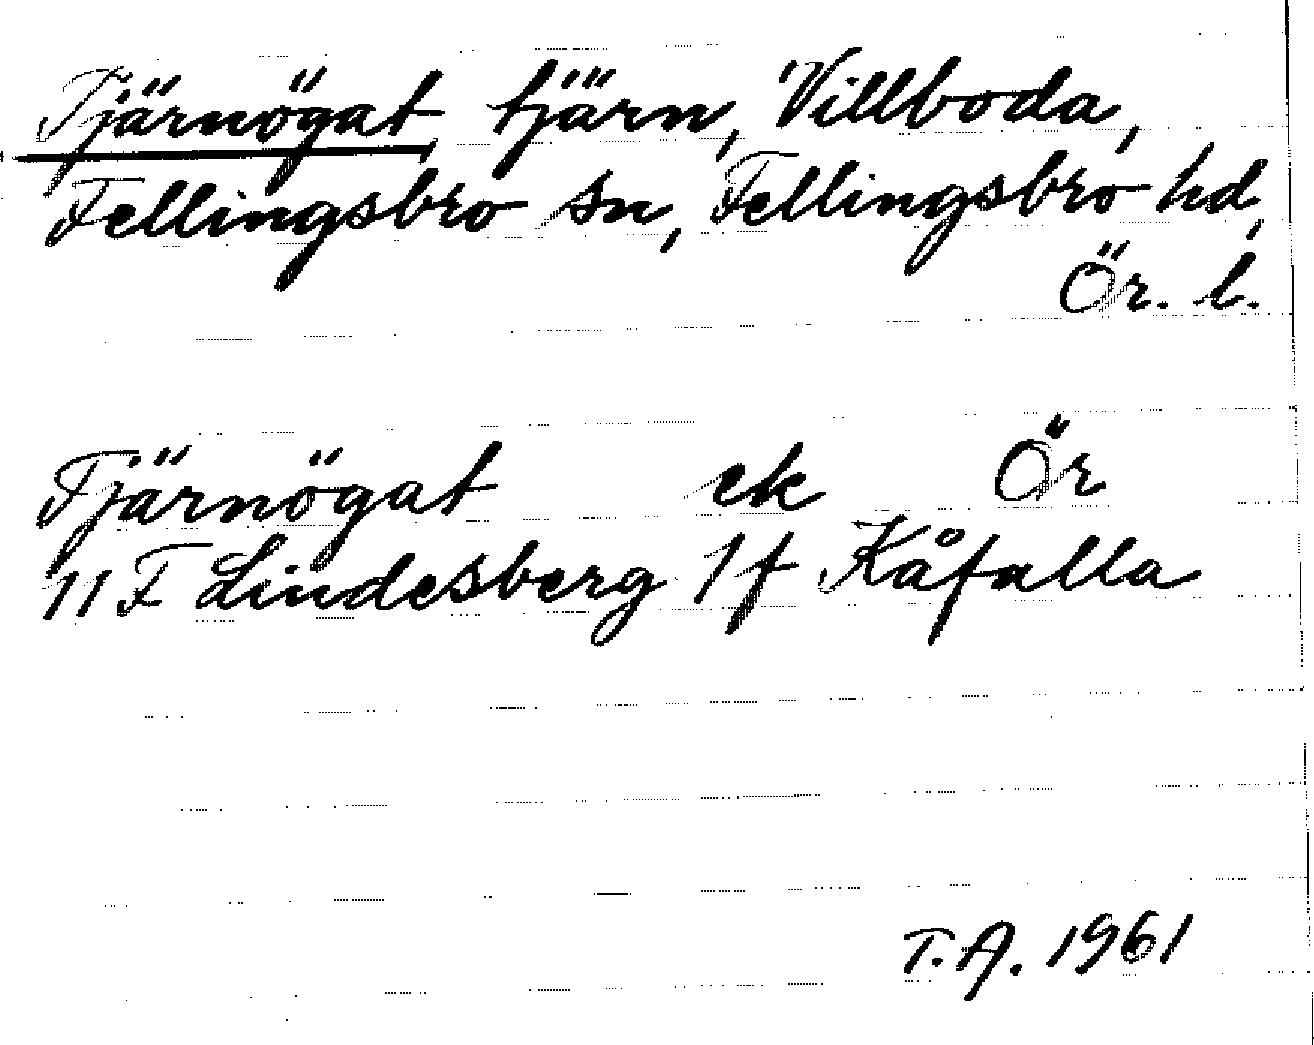 Tjärnögat, tjärn, Villboda,
Fellingsbro sn, Fellingsbro hd,
Ör. l.
Tjärnögat ek Ör
11 F Lindesberg 1 f Kåfalla
T.A. 1961